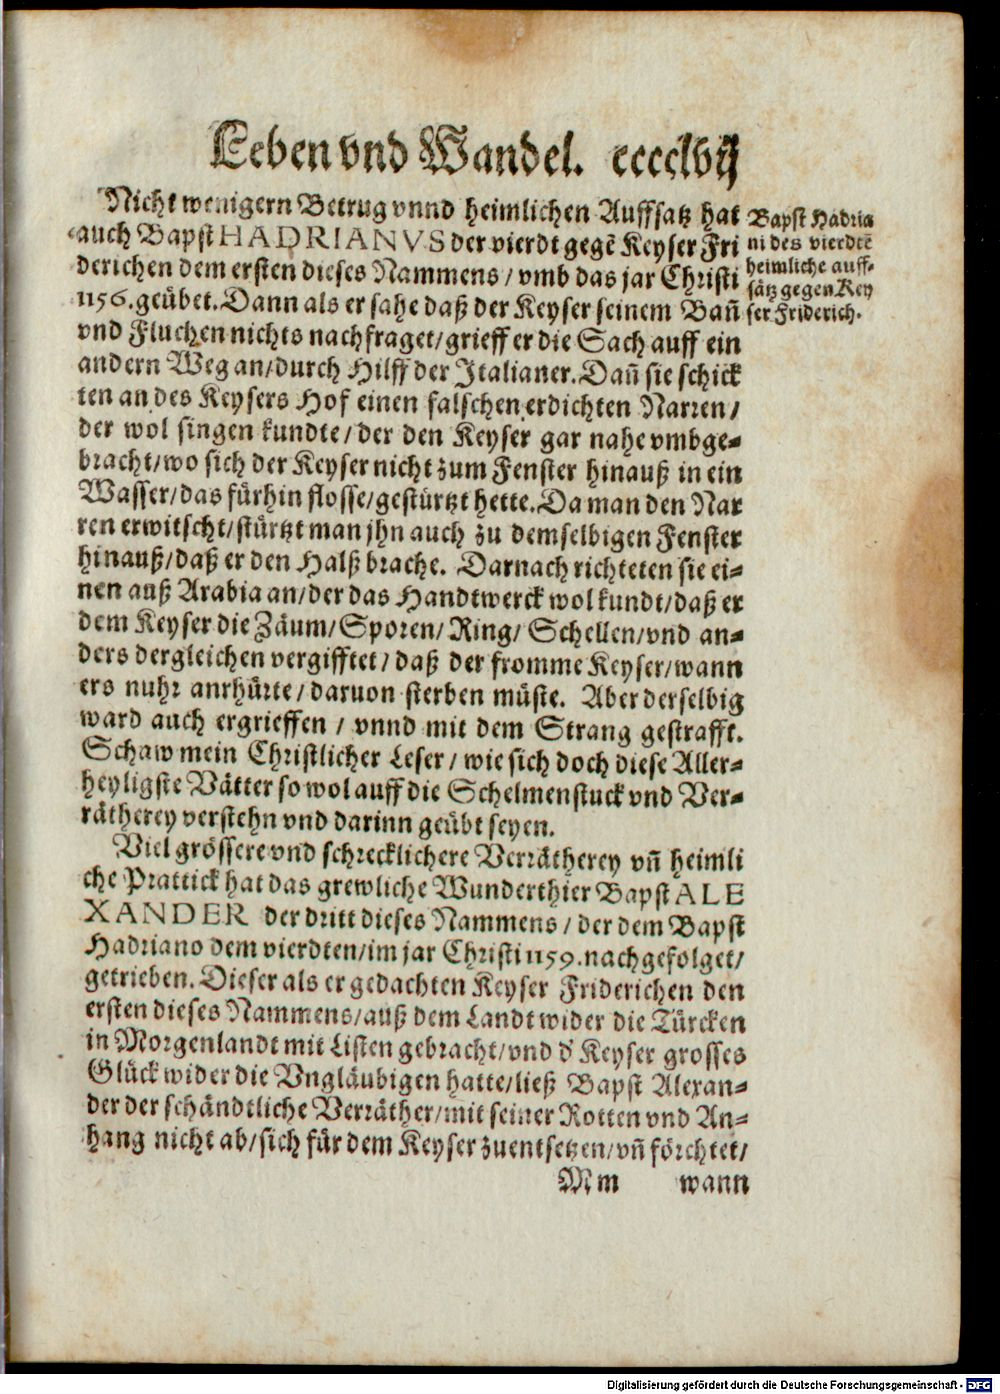 Leben vnd Wandel. cccclvij
Nicht wenigern Betrug vnnd heimlichen Auffsatz hat
auch Bapst HADRIANVS der vierdt gegẽ Keyser Fri
derichen dem ersten dieses Nammens / vmb das jar Christi
1156. geübet. Dann als er sahe daß der Keyser seinem Bañ
vnd Fluchen nichts nachfraget / grieff er die Sach auff ein
andern Weg an / durch Hilff der Italianer. Dañ sie schick
ten an des Keysers Hof einen falschen erdichten Narren /
der wol singen kundte / der den Keyser gar nahe vmbge-
bracht / wo sich der Keyser nicht zum Fenster hinauß in ein
Wasser / das fürhin flosse / gestürtzt hette. Da man den Nar
ren erwitscht / stürtzt man jhn auch zu demselbigen Fenster
hinauß / daß er den Halß brache. Darnach richteten sie ei-
nen auß Arabia an / der das Handtwerck wol kundt / daß er
dem Keyser die Zäum / Sporen / Ring / Schellen / vnd an-
ders dergleichen vergifftet / daß der fromme Keyser / wann
ers nuhr anrhürte / daruon sterben müste. Aber derselbig
ward auch ergrieffen / vnnd mit dem Strang gestrafft.
Schaw mein Christlicher Leser / wie sich doch diese Aller-
heyligste Vätter so wol auff die Schelmenstuck vnd Ver-
rätherey verstehn vnd darinn geübt seyen.
Viel grössere vnd schrecklichere Verrätherey vñ heimli
che Prattick hat das grewliche Wunderthier Bapst ALE
XANDER der dritt dieses Nammens / der dem Bapst
Hadriano dem vierdten / im jar Christi 1159. nachgefolget /
getrieben. Dieser als er gedachten Keyser Friderichen den
ersten dieses Nammens / auß dem Landt wider die Türcken
in Morgenlandt mit Listen gebracht / vnd d' Keyser grosses
Glück wider die Vngläubigen hatte / ließ Bapst Alexan-
der der schändtliche Verräther / mit seiner Rotten vnd An-
hang nicht ab / sich für dem Keyser zuentsetzen / vñ förchtet /
Mm wann
Bapst Hadria
ni des vierdtẽ
heimliche auff-
sätz gegen Key
ser Friderich.
Digitalisierung gefördert durch die Deutsche Forschungsgemeinschaft - DFG